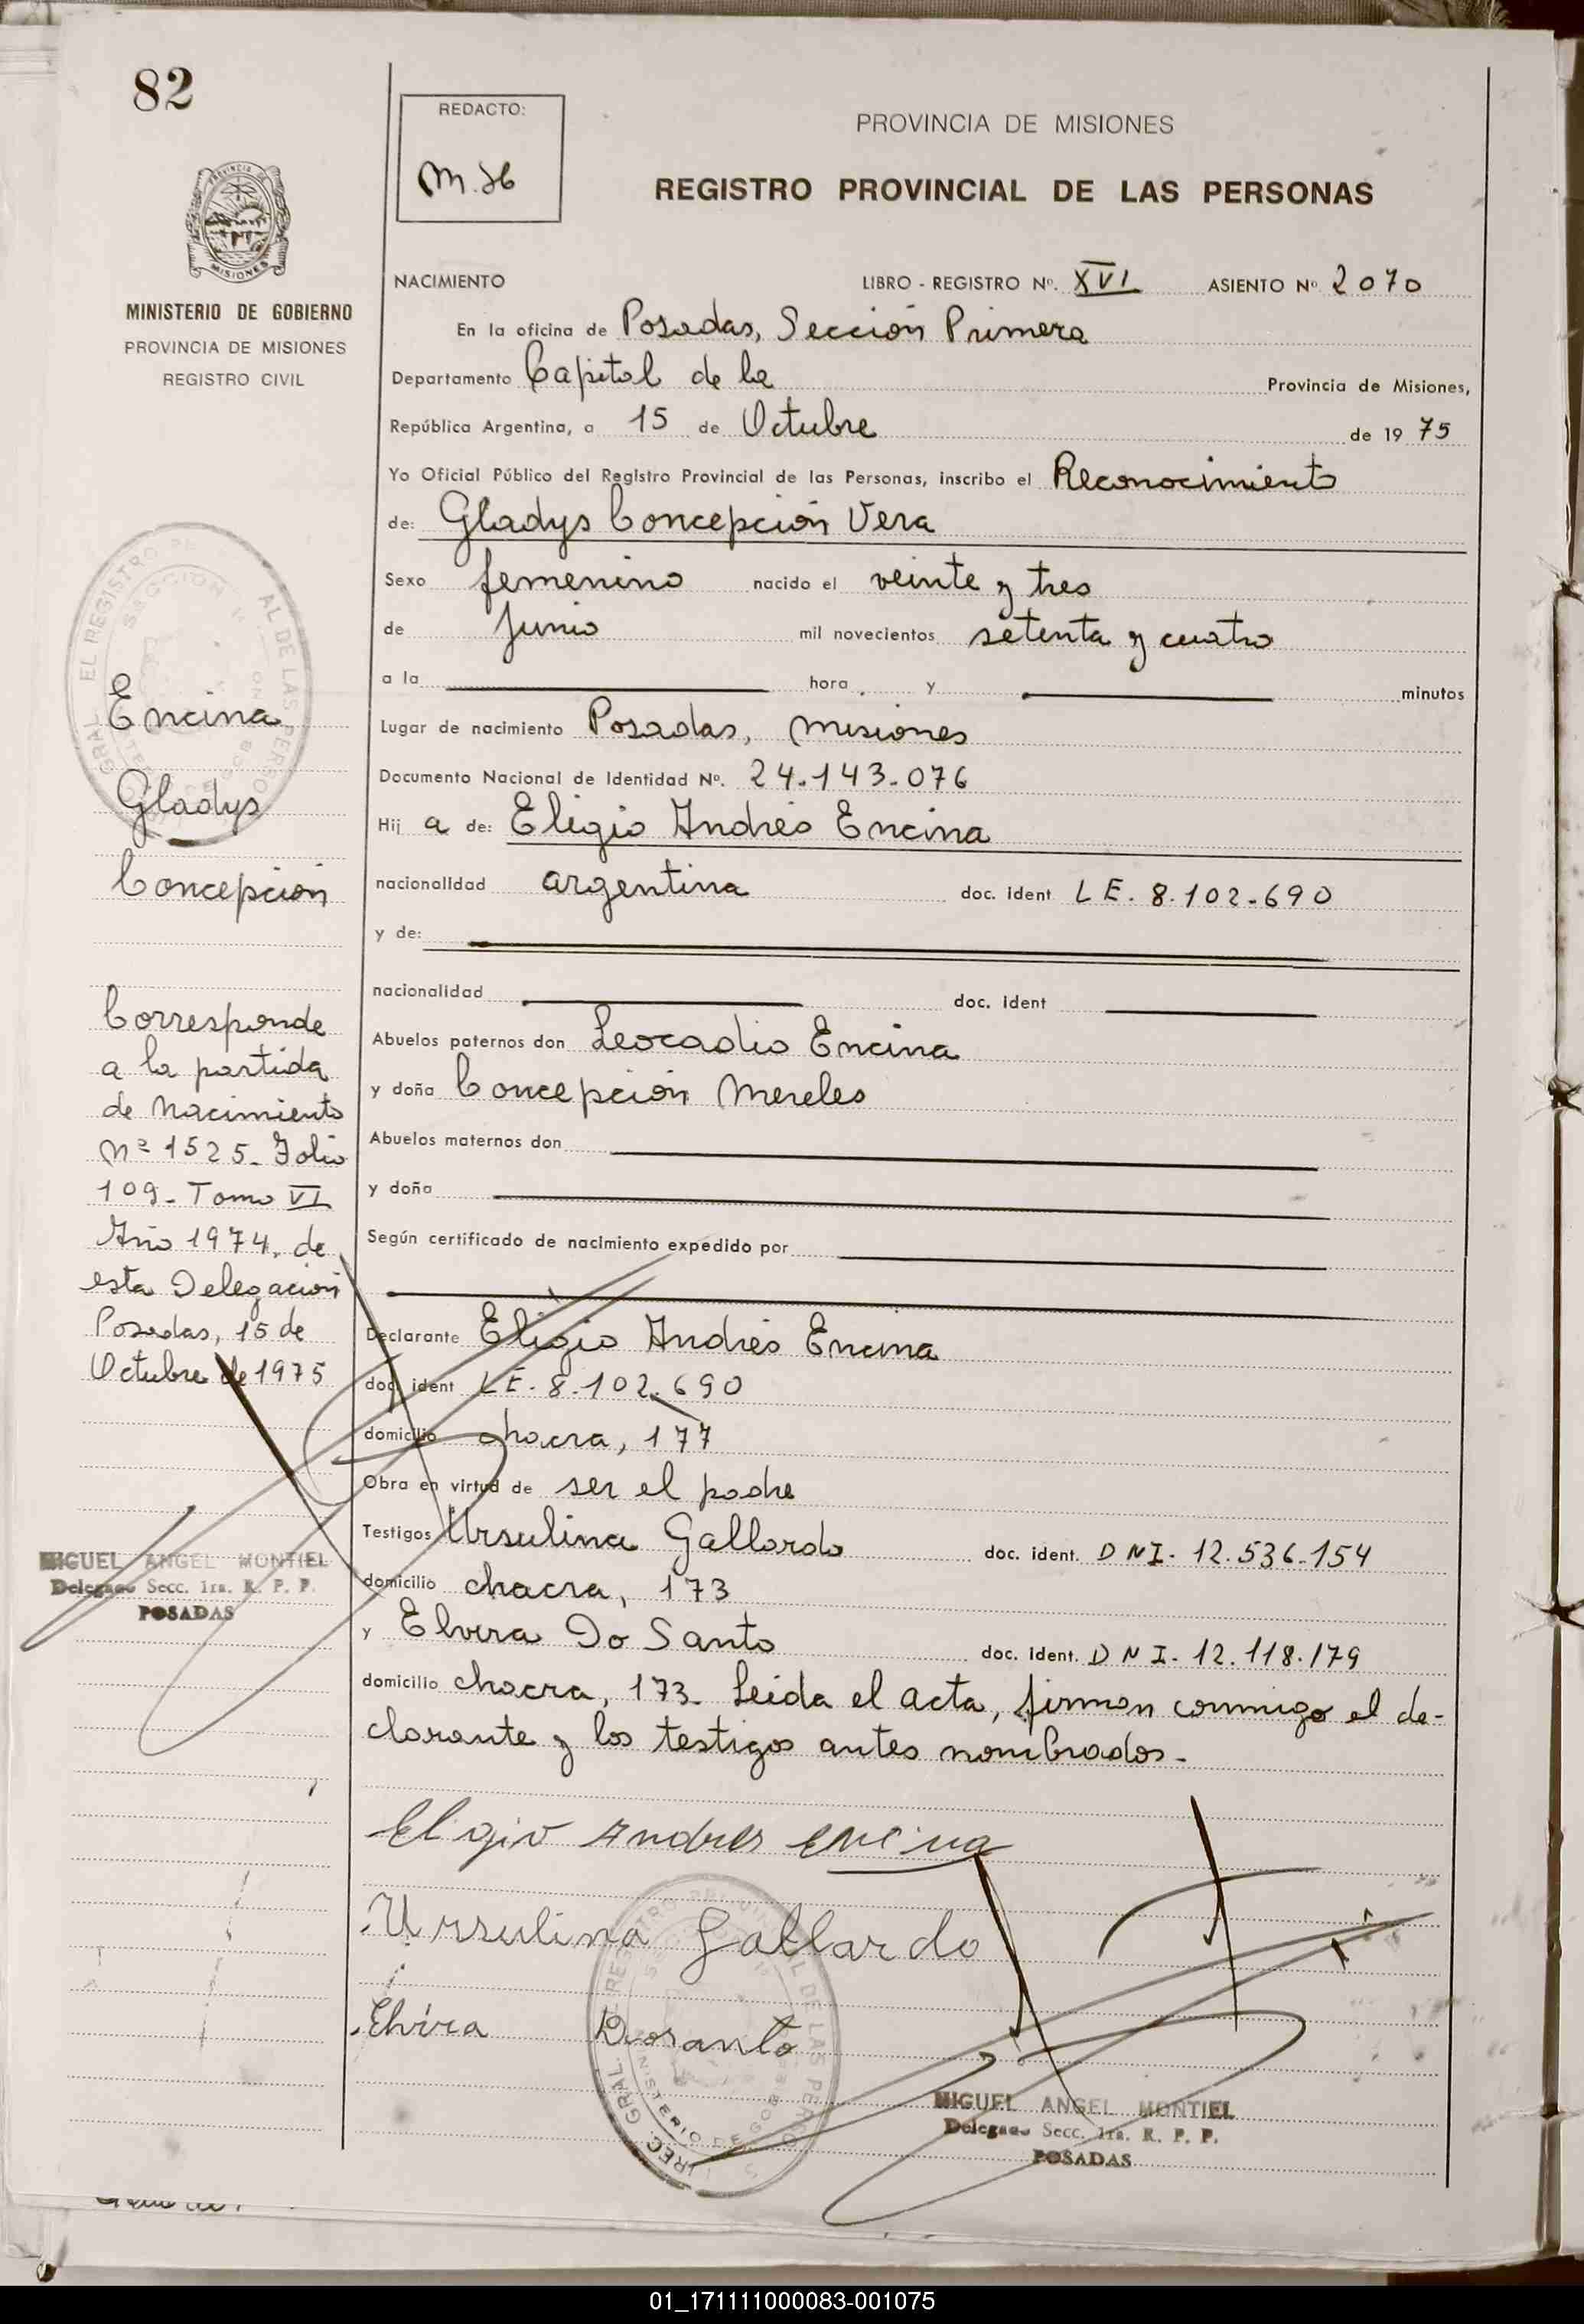 82
REDACTO:
PROVINCIA DE MISIONES
REGISTRO PROVINCIAL DE LAS PERSONAS
MINISTERIO DE GOBIERNO
PROVINCIA DE MISIONES
REGISTRO CIVIL
NACIMIENTO LIBRO - REGISTRO Nº. XVI ASIENTO Nº 2070
En la oficina de Posadas, Sección Primera
Departamento Capital de la Provincia de Misiones,
República Argentina, a 15 de Octubre de 1975
Yo Oficial Público del Registro Provincial de las Personas, inscribo el Reconocimiento
de: Gladys Concepción Vera
Sexo femenino nacido el veinte y tres
de Junio mil novecientos setenta y cuatro
a la hora y minutos
Lugar de nacimiento Posadas, Misiones
Documento Nacional de Identidad Nº. 24.143.076
Hij a de: Eligio Andrés Encina
nacionalidad argentina doc. ident LE. 8.102.690
y de:
nacionalidad doc. ident
Abuelos paternos don Leocadio Encina
y doña Concepción Mereles
Abuelos maternos don
y doña
Según certificado de nacimiento expedido por
Declarante Eligio Andrés Encina
doc. ident LE. 8.102.690
domicilio chacra, 177
Obra en virtud de ser el padre
Testigos Ursulina Gallardo doc. ident. DNI. 12.536.154
domicilio chacra, 173
y Elvira Do Santo doc. ident. DNI. 12.118.179
domicilio chacra, 173. Leida el acta, firman conmigo el de-
clarante y los testigos antes nombrados.
Eligio Andres Encina
Ursulina Gallardo
Elvira Dosanto
MIGUEL ANGEL MONTIEL
Delegado Secc. 1ra. R. P. P.
POSADAS
Encina
Gladys
Concepción
Corresponde
a la partida
de Nacimiento
Nº 1525. Folio
109. Tomo VI
Año 1974, de
esta Delegación
Posadas, 15 de
Octubre de 1975
MIGUEL ANGEL MONTIEL
Delegado Secc. 1ra. R. P. P.
POSADAS
01_171111000083-001075